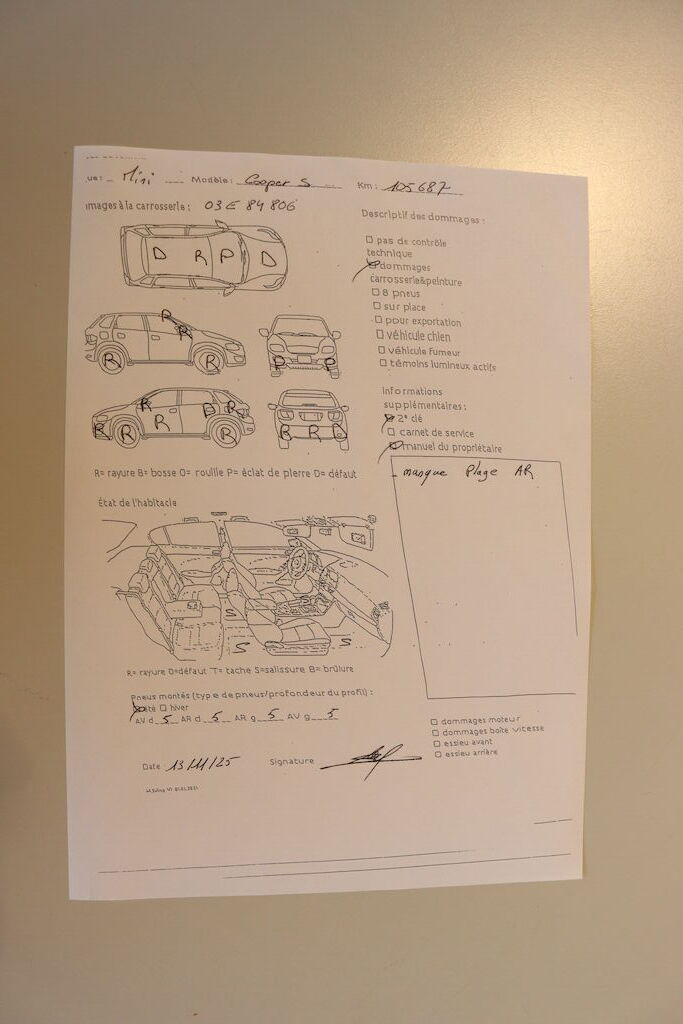 ue: Mini Modèle: Cooper S Km: 105687
mages à la carrosserie: 03 E 84 806
Descriptif des dommages:
D R P D
□ pas de contrôle
technique
☒ dommages
carrosserie&peinture
□ 8 pneus
□ sur place
□ pour exportation
□ véhicule chien
□ véhicule fumeur
□ témoins lumineux actifs
R R R R
P P
R R B R
R R R R
B R D
Informations
supplémentaires:
☒ 2ᵉ clé
□ carnet de service
☒ manuel du propriétaire
- manque Plage AR
R= rayure B= bosse O= rouille P= éclat de pierre D= défaut
État de l'habitacle
S S
S S
R= rayure D=défaut T= tache S=salissure B= brûlure
Pneus montés (type de pneus/profondeur du profil):
☒ été □ hiver
AV d 5 AR d 5 AR g 5 AV g 5
□ dommages moteur
□ dommages boîte vitesse
□ essieu avant
□ essieu arrière
Date: 13/11/25 Signature